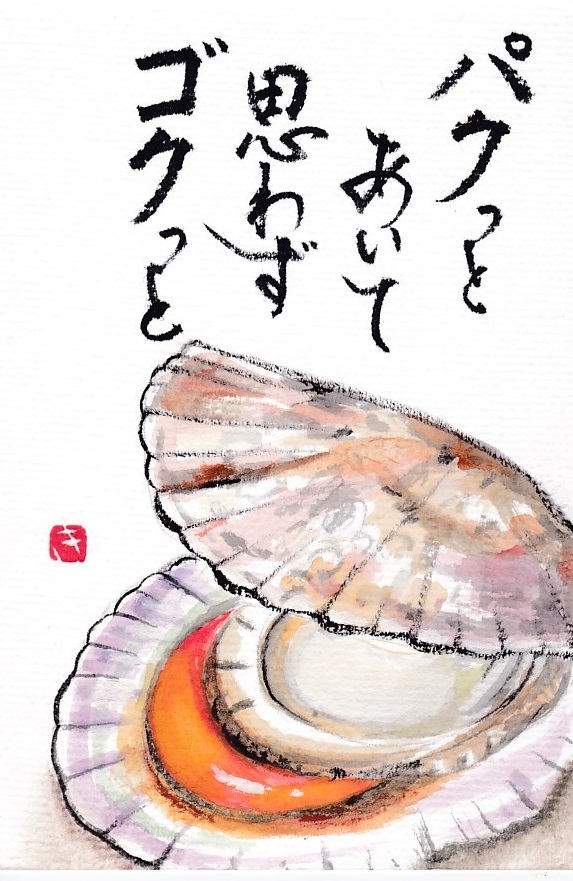 パクっと
あいて
思わず
ゴクっと